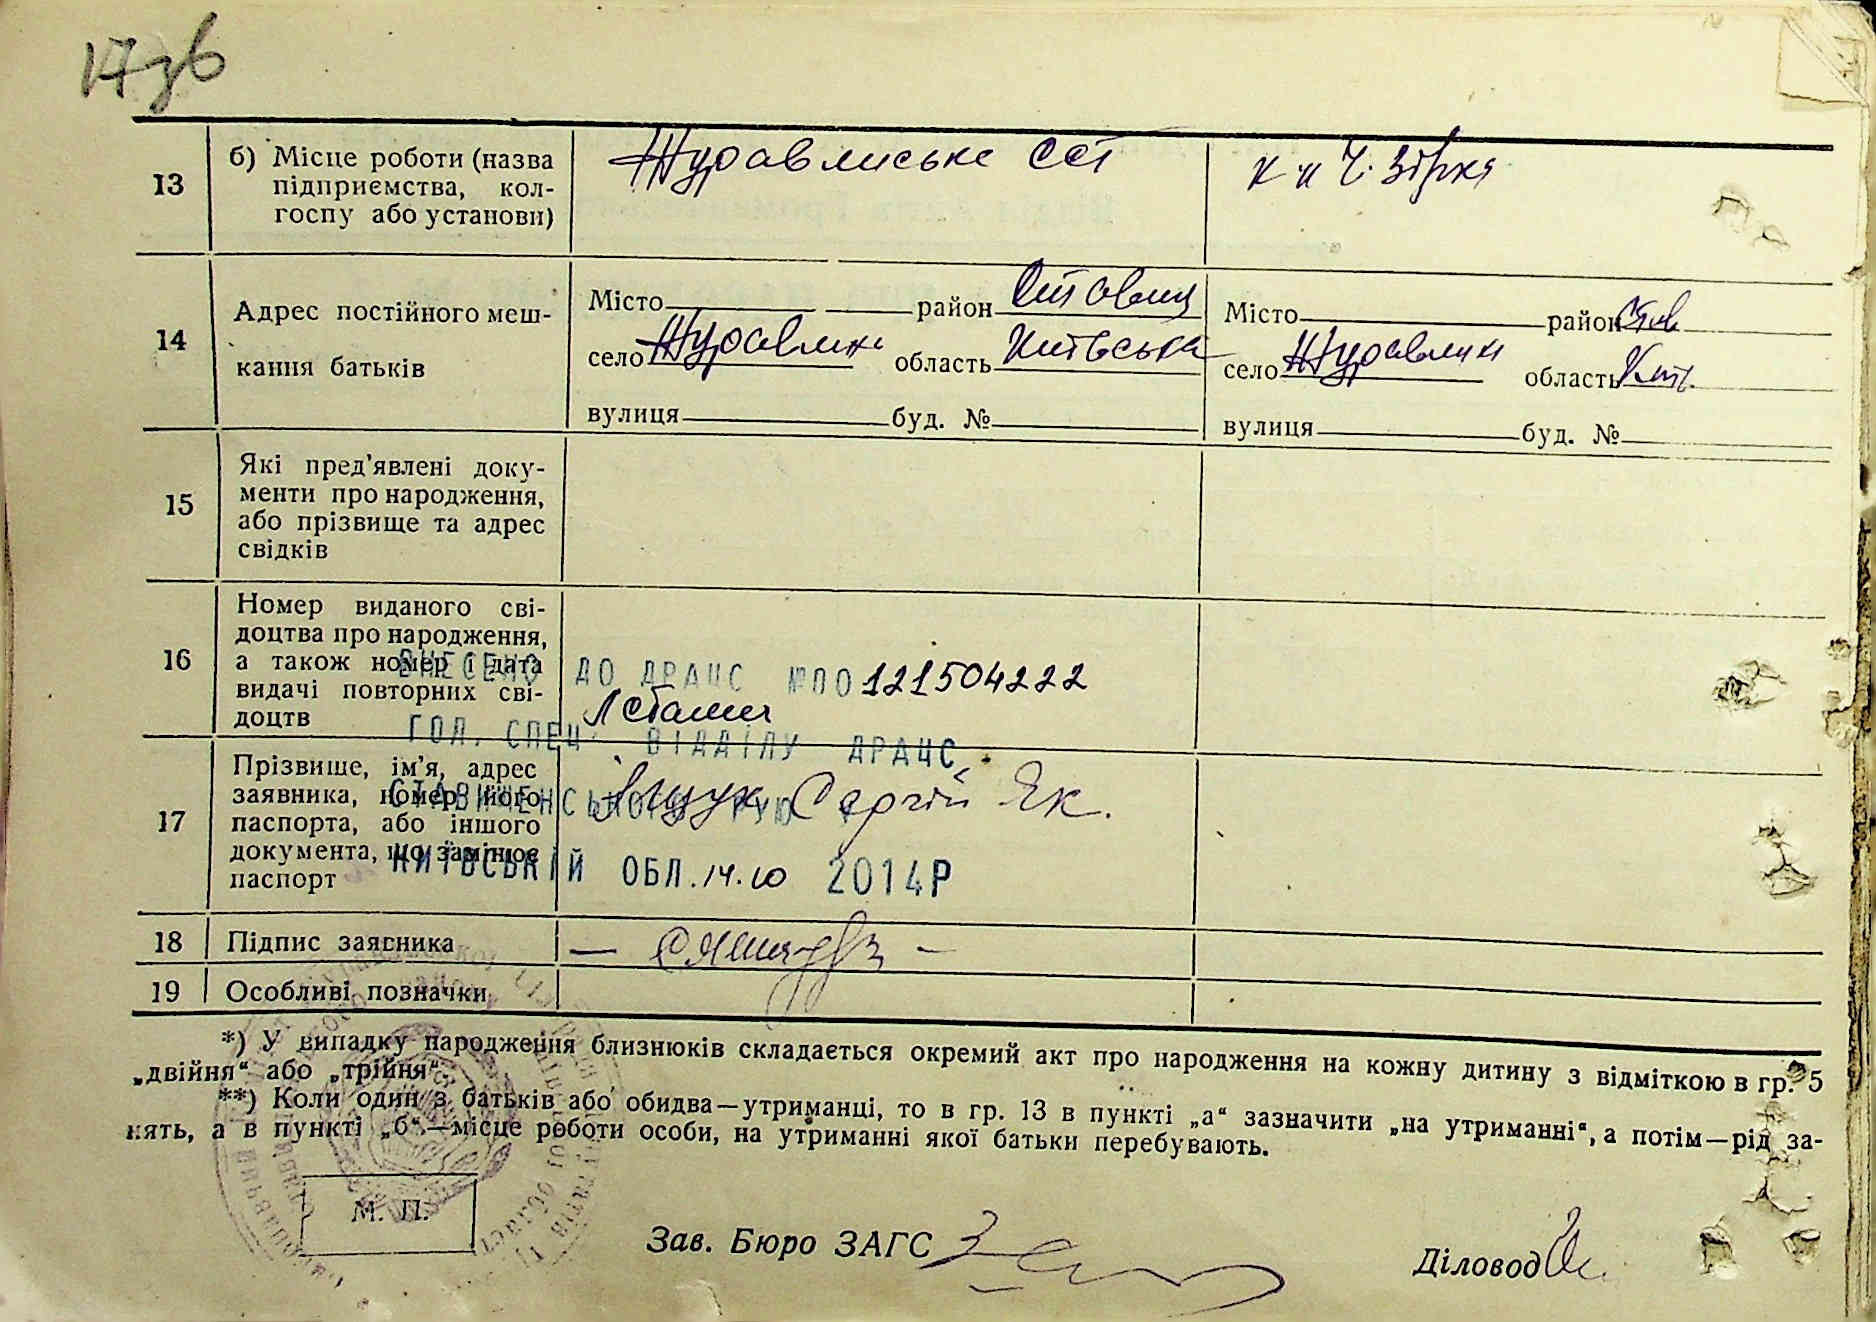 17зв
13
б) Місце роботи (назва
підприємства, кол-
госпу або установи)
Журавлиське ССТ
к-п Ч. Зірка
14
Адрес постійного меш-
кання батьків
Місто район Ставищ
село Журавлиха область Київська
вулиця буд. №
Місто район Став
село Журавлиха область Київ.
вулиця буд. №
15
Які пред'явлені доку-
менти про народження,
або прізвище та адрес
свідків
16
Номер виданого сві-
доцтва про народження,
а також номер і дата
видачі повторних сві-
доцтв
ВНЕСЕНО ДО ДРАЦС №ПО 121504222
ГОЛ. СПЕЦ. ВІДДІЛУ ДРАЦС
СТАВИЩЕНСЬКОГО РУЮ У
КИЇВСЬКІЙ ОБЛ. 14.10 2014Р
17
Прізвише, ім'я, адрес
заявника, номер його
паспорта, або іншого
документа, що замінює
паспорт
Ящук Сергій Як.
18
Підпис заявника
19
Особливі позначки
*) У випадку народження близнюків складається окремий акт про народження на кожну дитину з відміткою в гр. 5
„двійня“ або „трійня“.
**) Коли один з батьків або обидва—утриманці, то в гр. 13 в пункті „а“ зазначити „на утриманні“, а потім—рід за-
нять, а в пункті „б“—місце роботи особи, на утриманні якої батьки перебувають.
М. П.
Зав. Бюро ЗАГС
Діловод